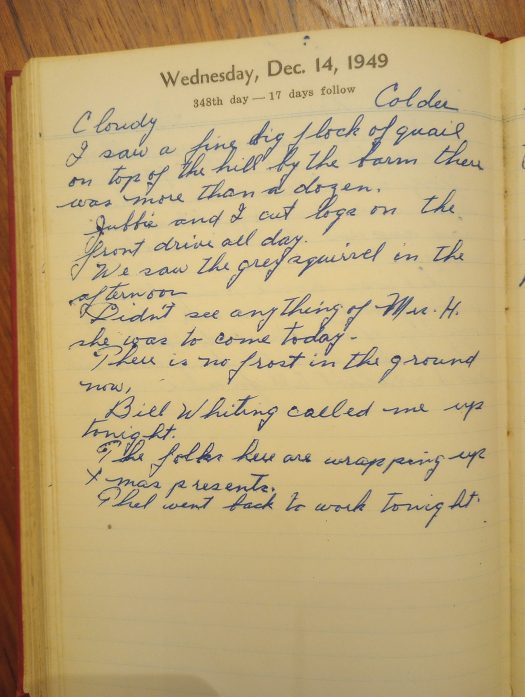 Wednesday, Dec. 14, 1949
348th day — 17 days follow
Cloudy Colder
I saw a fine big flock of quail
on top of the hill by the barm there
was more than a dozen.
Jubbie and I cut logs on the
front drive all day.
We saw the grey squirrel in the
afternoon
Didn't see anything of Mrs. H.
she was to come today.
There is no frost in the ground
now,
Bill Whiting called me up
tonight.
The folks here are wrapping up
Xmas presents.
Phel went back to work tonight.